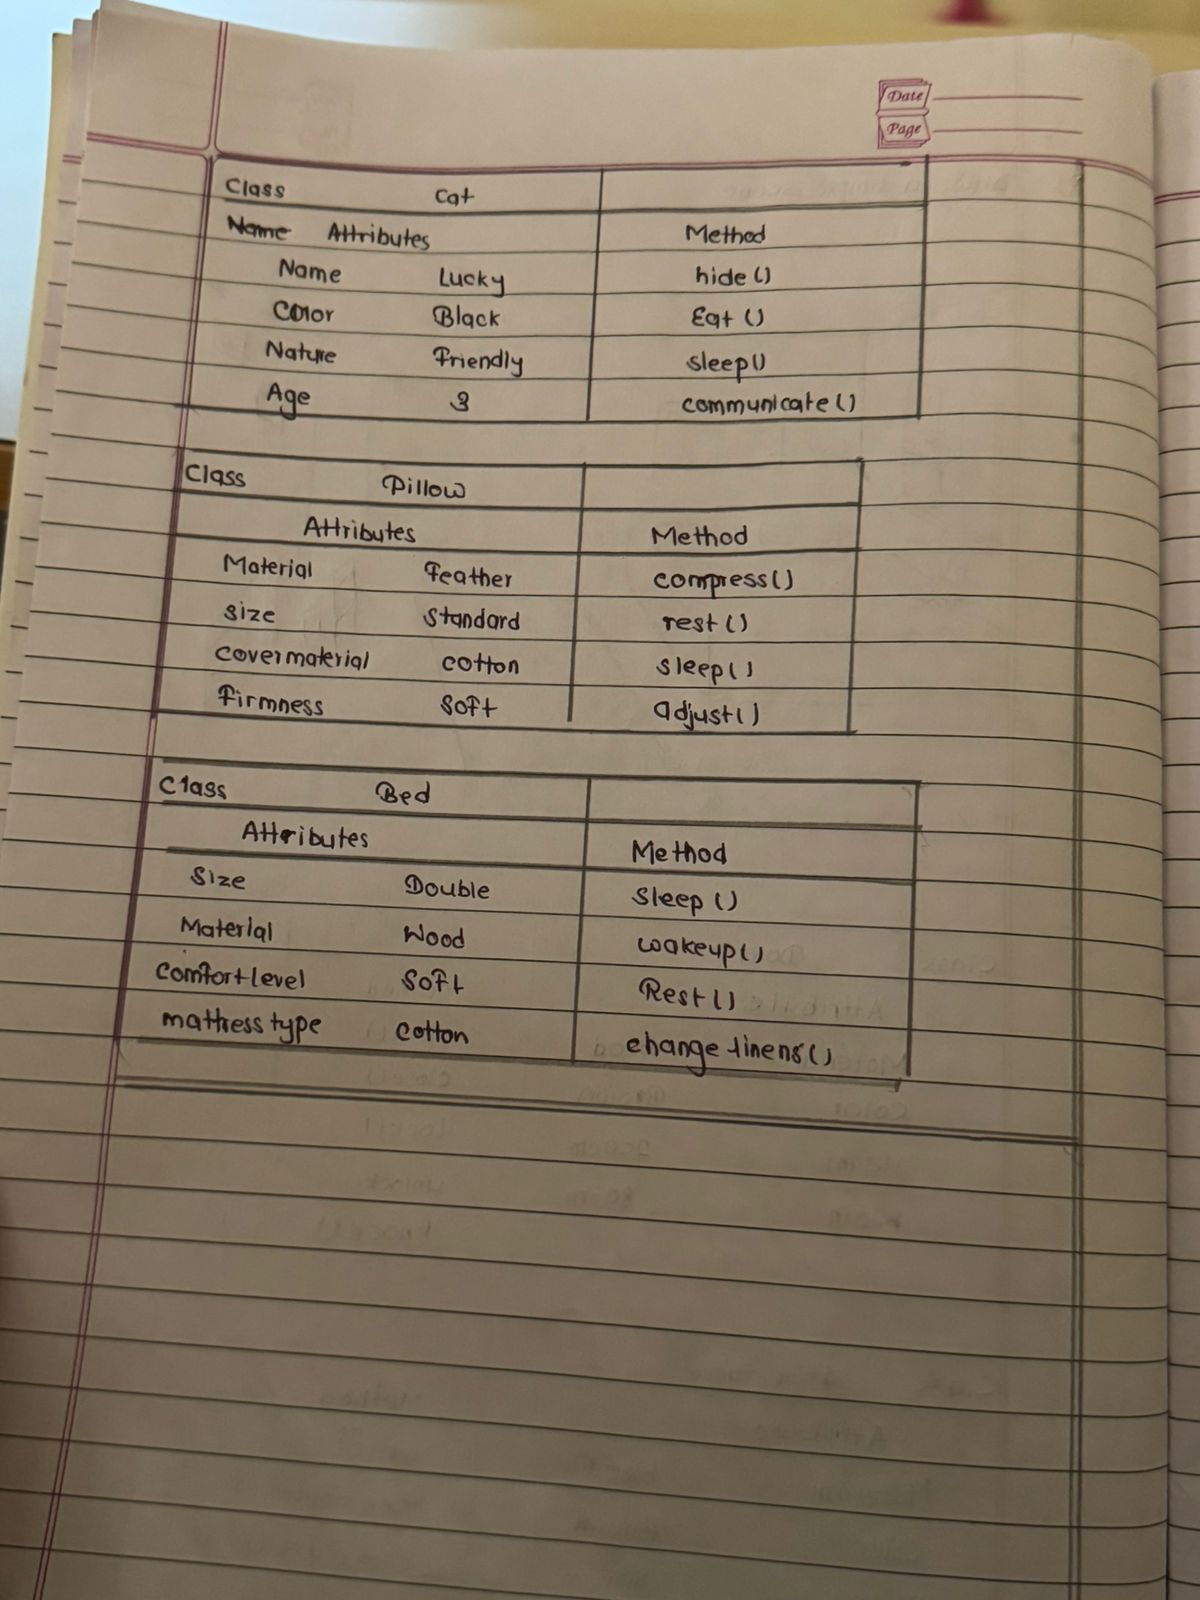 Date
Page
Class Cat
Name Attributes Method
Name Lucky hide()
Color Black Eat ()
Nature Friendly sleep()
Age 3 communicate()
Class Pillow
Attributes Method
Material Feather compress()
size Standard rest()
covermaterial cotton sleep()
Firmness Soft adjust()
Class Bed
Attributes Method
Size Double Sleep ()
Material Wood wakeup()
comfortlevel Soft Rest()
mattress type Cotton change linens()